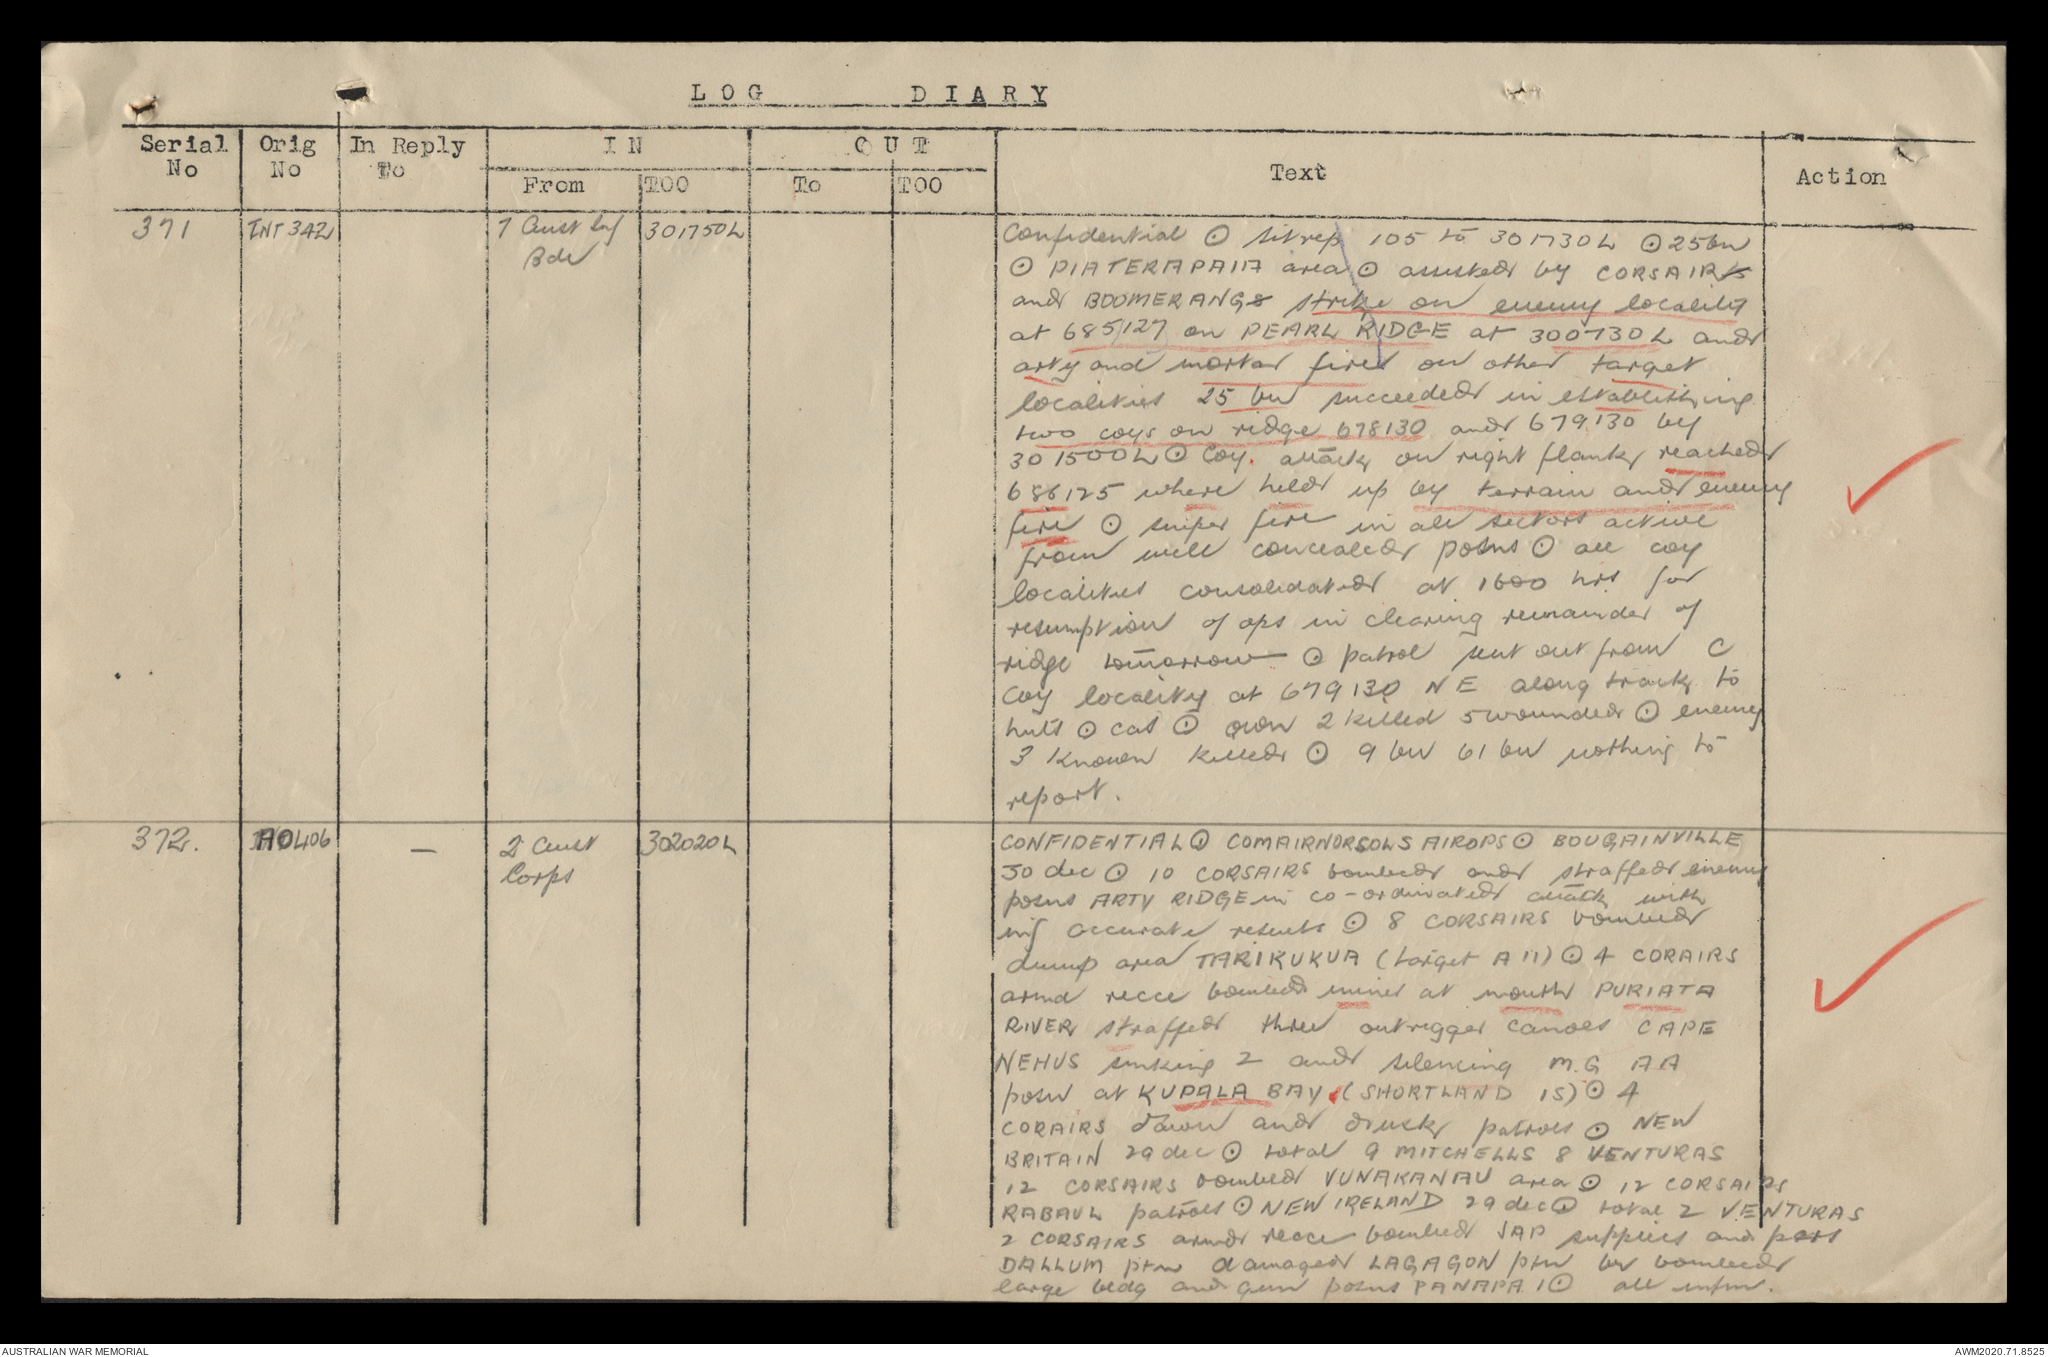 LOG DIARY
Serial No
Orig No
In Reply To
IN
From
TOO
OUT
To
TOO
Text
Action
371
INT 342
7 Aust Inf
Bde
301750L
Confidential ⊙ sitrep 105 to 301730L ⊙ 25bn
⊙ PIATERAPAIA area ⊙ assisted by CORSAIRS
and BOOMERANGS strike on enemy locality
at 685127 on PEARL RIDGE at 300730L and
arty and mortar fire on other target
localities 25 bn succeeded in establishing
two coys on ridge 678130 and 679130 by
301500L ⊙ Coy. attack on right flank reached
686125 where held up by terrain and enemy
fire ⊙ sniper fire in all sectors active
from well concealed posns ⊙ all coy
localities consolidated at 1600 hrs for
resumption of ops in clearing remainder of
ridge tomorrow ⊙ patrol sent out from C
Coy locality at 679130 NE along track to
huts ⊙ cas ⊙ own 2 killed 5 wounded ⊙ enemy
3 known killed ⊙ 9 bn 61 bn nothing to
report.
372.
AO406
—
2 Aust
Corps
302020L
CONFIDENTIAL ⊙ COMAIRNORSOLS AIROPS ⊙ BOUGAINVILLE
30 dec ⊙ 10 CORSAIRS bombed and straffed enemy
posns ARTY RIDGE in co-ordinated attack with
inf accurate results ⊙ 8 CORSAIRS bombed
dump area TARIKUKUA (target A 11) ⊙ 4 CORAIRS
armd recce bombed mines at mouth PURIATA
RIVER straffed three outrigger canoes CAPE
NEHUS sinking 2 and silencing M.G AA
posn at KUPALA BAY (SHORTLAND IS) ⊙ 4
CORAIRS dawn and dusk patrols ⊙ NEW
BRITAIN 29 dec ⊙ total 9 MITCHELLS 8 VENTURAS
12 CORSAIRS bombed VUNAKANAU area ⊙ 12 CORSAIRS
RABAUL patrols ⊙ NEW IRELAND 29 dec ⊙ total 2 VENTURAS
2 CORSAIRS armd recce bombed JAP supplies and pers
DALLUM ptn damaged LAGAGON ptn br bombed
large bldg and gun posns PANAPA I ⊙ all infm.
AUSTRALIAN WAR MEMORIAL
AWM2020.71.8525